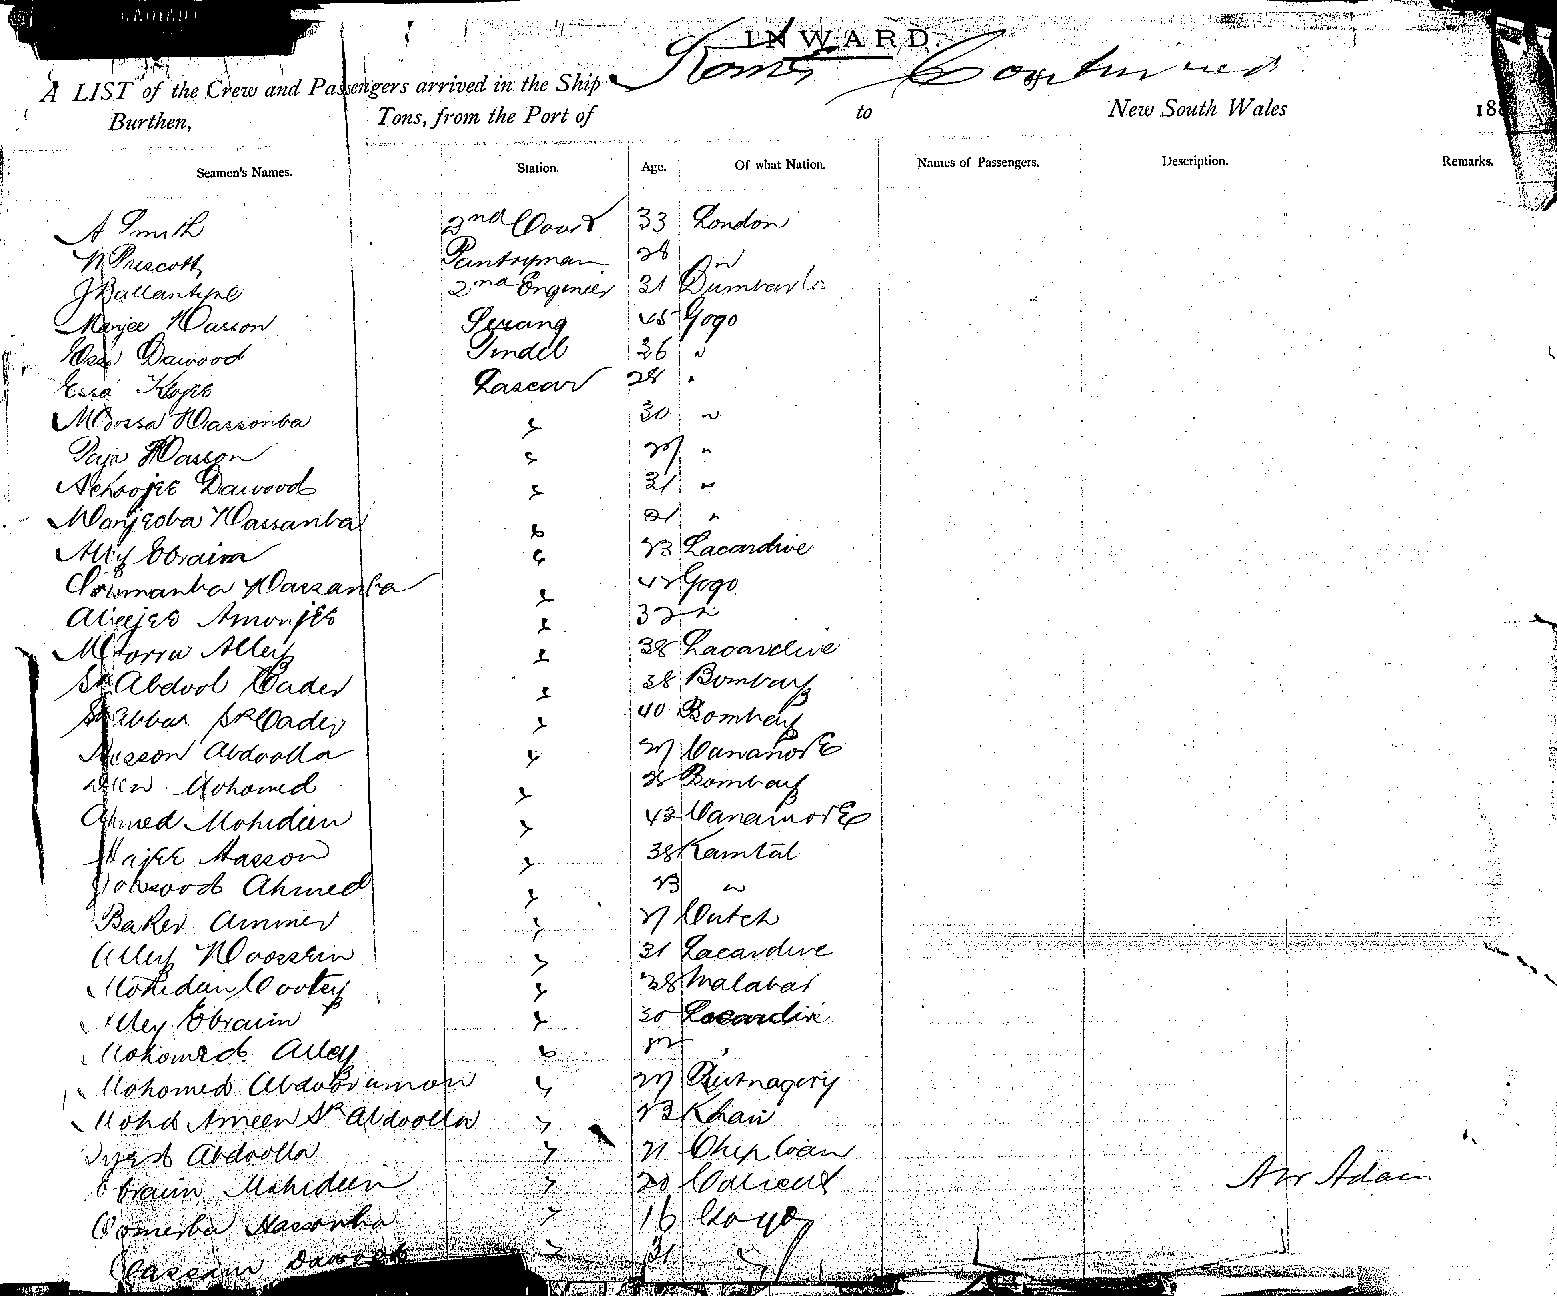 INWARD.
Rome Continued
A LIST of the Crew and Passengers arrived in the Ship
Burthen, Tons, from the Port of to New South Wales 188
Seamen's Names. Station. Age. Of what Nation. Names of Passengers. Description. Remarks.
A Smith 2nd Cook 33 London
Prescott Pantryman 28 "
J Ballantyne 2nd Enginier 31 Dumbarton
Manjee Hasson Serang 45 Gogo
Essa Dawood Tindel 36 "
Essa Lascar 28 "
Moossa Hassonba " 30 "
Hasson " 27 "
Dawood " 31 "
Manjeoba Hassanba " 21 "
Ally Ebraim " 23 Lacardive
Hassanba " 42 Gogo
Aleejee Amonjee " 32 "
Alley " 38 Lacardive
Sk Abdool Cader " 38 Bombay
Sk Abbas Sk Cader " 40 Bombay
Hesson Abdoolla " 27 Cananore
Mohomed " 28 Bombay
Ahmed Mohideen " 42 Cananore
Hajee Hasson " 38 Kamtal
Ahmed " 23 "
Baker Ammer " 27 Cutch
Alley Hoossein " 31 Lacardive
Mohideen Cootey " 38 Malabar
Alley Ebraim " 30 Lacardive
Mohomed Alley " "
Mohomed " 27 Rutnagery
Mohd Ameen Sk Abdoolla " 23 Khair
Abdoolla " 21 Chiploan
Ebraim Mohideen " 20 Calicut
Oomerba Hassonba " 16 Gogo
Cassim Dawood " 31 "
Adam